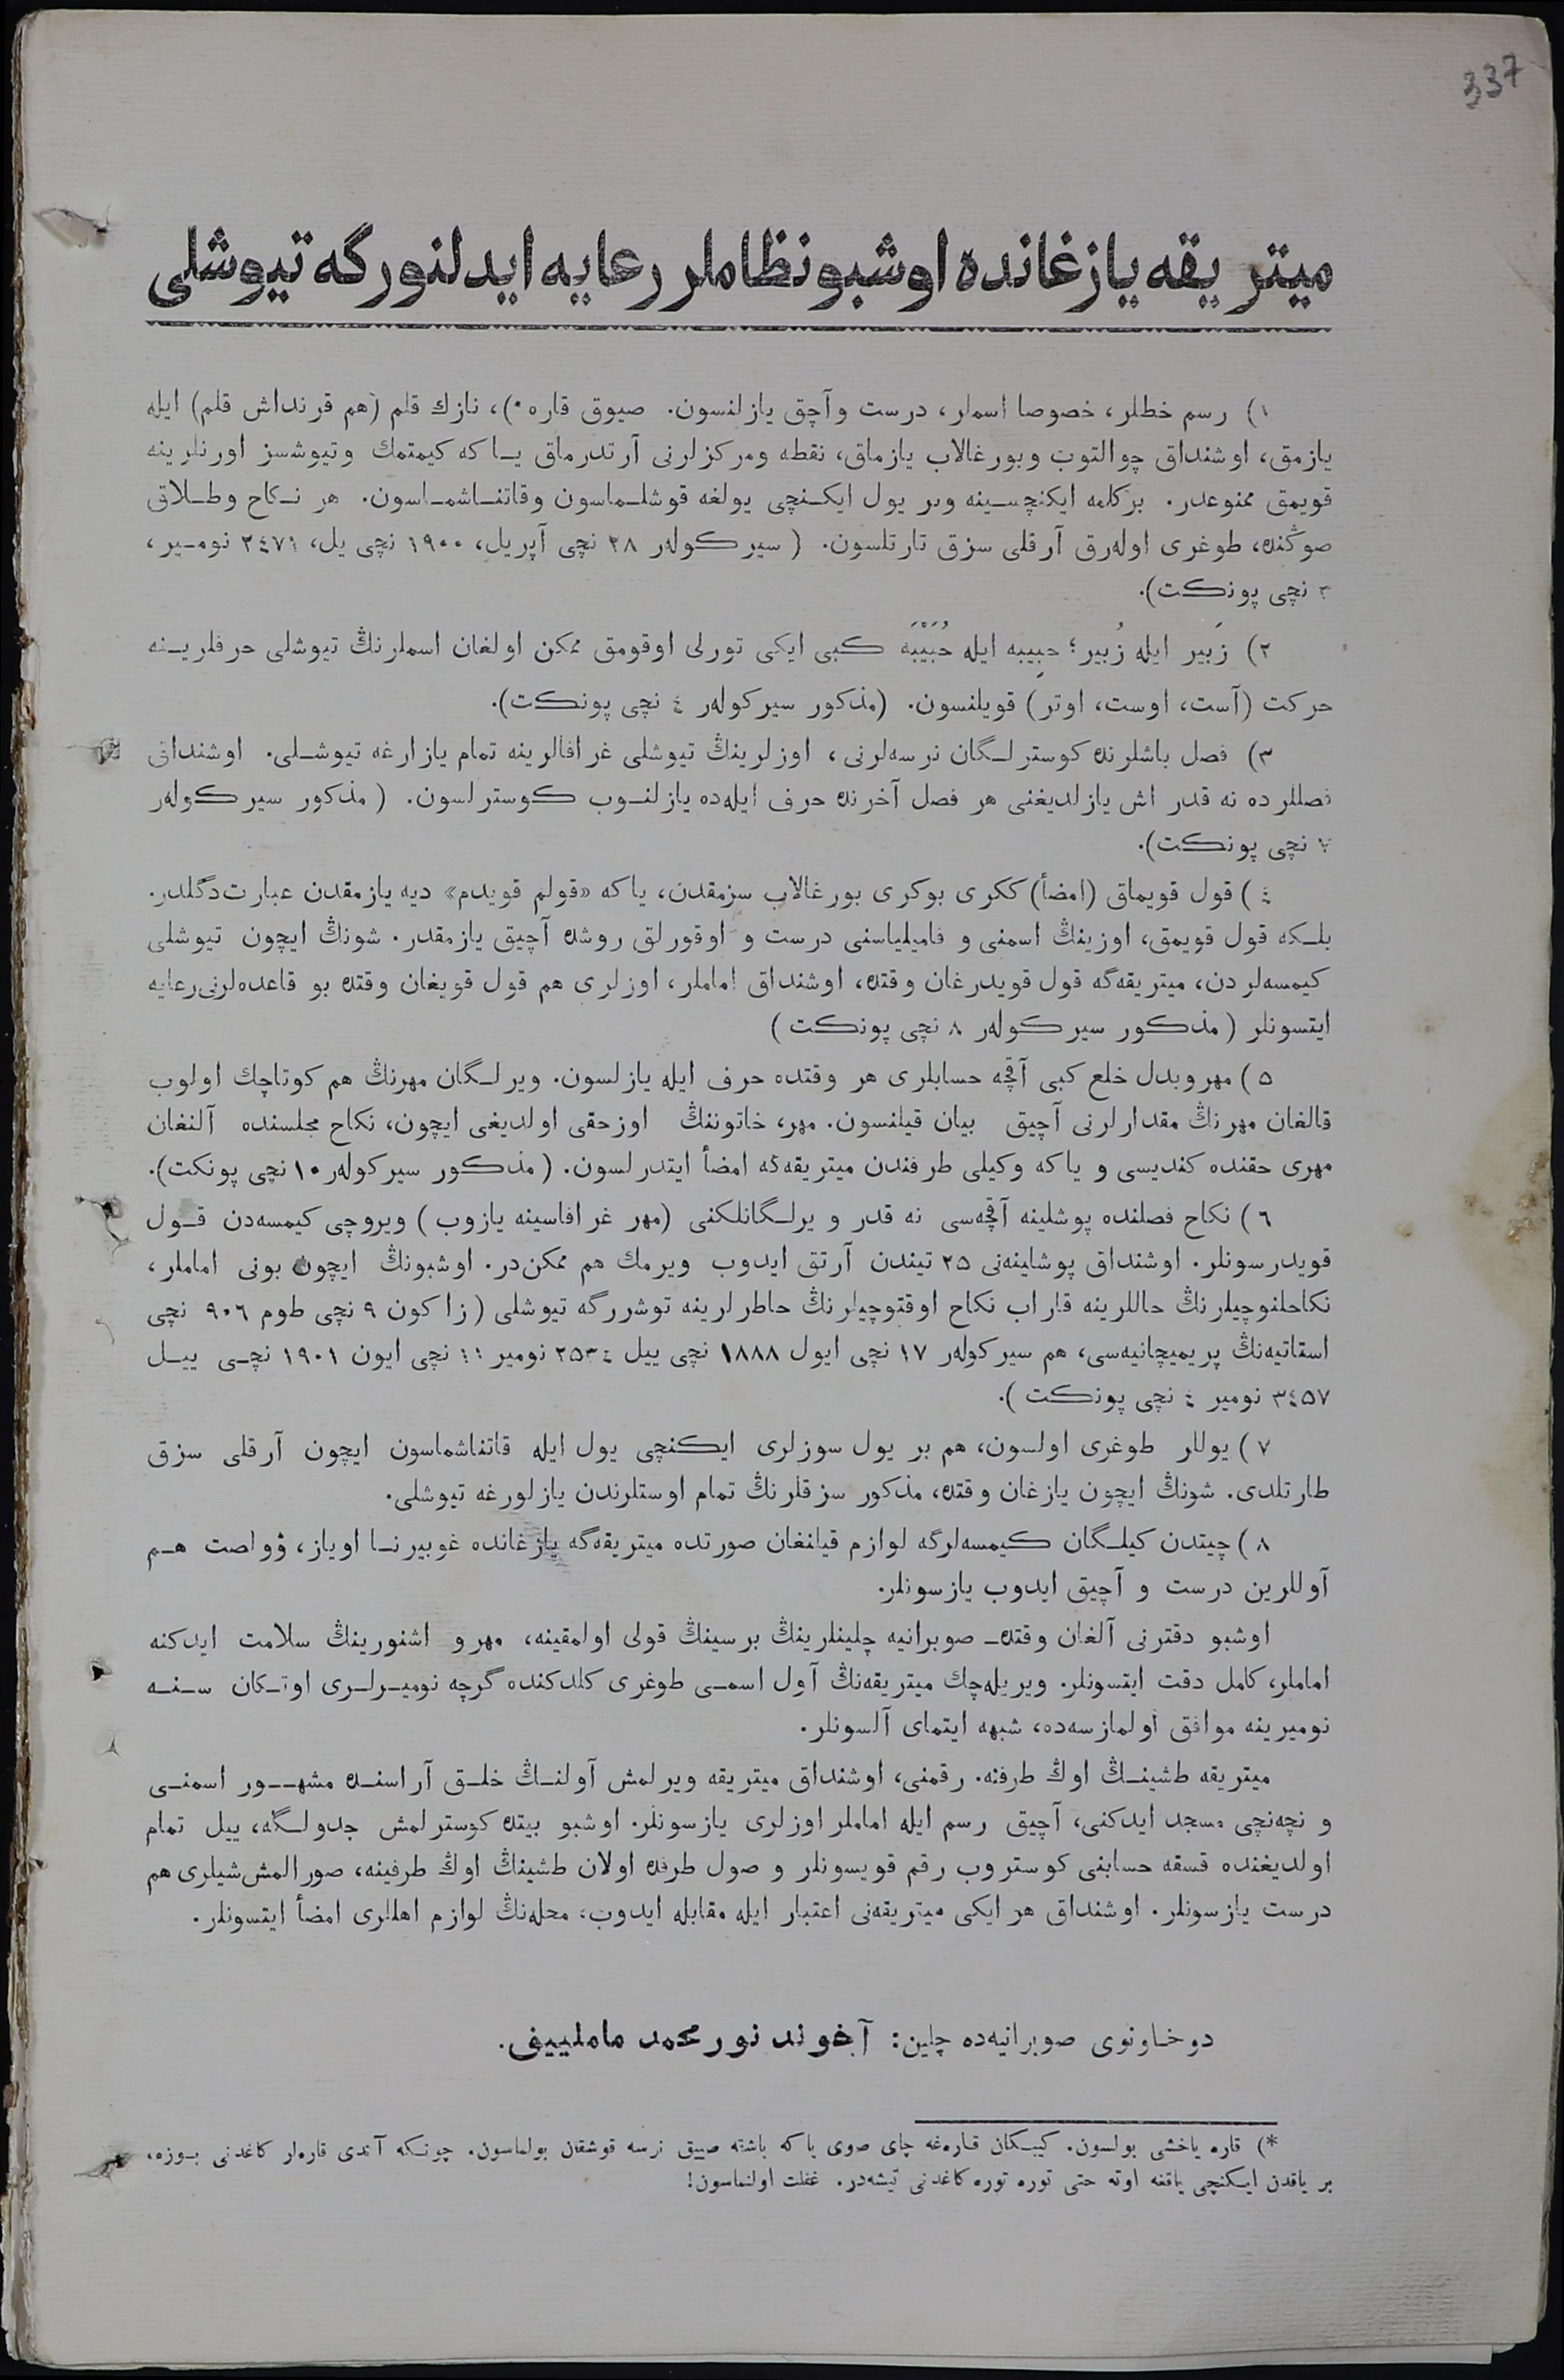 337
ميتريقه يازغانده اوشبو نظاملر رعايه ايدلنورگه تيوشلى
١) رسم خطلر، خصوصا اسملر، درست وآچق يازلنسون. صيوق قاره*)، نازك قلم (هم قرنداش قلم) ايله
يازمق، اوشنداق چوالتوب وبورغالاب يازماق، نقطه ومركزلرنى آرتدرماق يا كه كيمتمك وتيوشسز اورنلرينه
قويمق ممنوعدر. بركلمه ايكنچسينه وبر يول ايكنچى يولغه قوشلماسون وقاتناشماسون. هر نكاح وطلاق
صوڭنده، طوغرى اولەرق آرقلى سزق تارتلسون. (سيركولەر ٢٨ نچى آپريل، ١٩٠٠ نچى يل، ٢٤٧١ نومير،
٣ نچى پونكت).
٢) زَبير ايله زُبير؛ حبِيبه ايله حُبَيْبَه كبى ايكى تورلى اوقومق ممكن اولغان اسملرنڭ تيوشلى حرفلرينه
حركت (آست، اوست، اوتر) قويلنسون. (مذكور سيركولەر ٤ نچى پونكت).
٣) فصل باشلرنده كوسترلگان نرسەلرنى، اوزلرينڭ تيوشلى غرافالرينه تمام يازارغه تيوشلى. اوشنداق
فصللرده نه قدر اش يازلديغنى هر فصل آخرنده حرف ايلەده يازلنوب كوسترلسون. (مذكور سيركولەر
٧ نچى پونكت).
٤) قول قويماق (امضأ) ككرى بوكرى بورغالاب سزمقدن، ياكه «قولم قويدم» ديه يازمقدن عبارت دگلدر.
بلكه قول قويمق، اوزينڭ اسمنى و فاميلياسنى درست و اوقورلق روشده آچيق يازمقدر. شونڭ ايچون تيوشلى
كيمسەلردن، ميتريقەگه قول قويدرغان وقتده، اوشنداق اماملر، اوزلرى هم قول قويغان وقتده بو قاعدەلرنى رعايه
ايتسونلر (مذكور سيركولەر ٨ نچى پونكت)
٥) مهر وبدل خلع كبى آقچه حسابلرى هر وقتده حرف ايله يازلسون. ويرلگان مهرنڭ هم كوتاچك اولوب
قالغان مهرنڭ مقدارلرنى آچيق بيان قيلنسون. مهر، خاتوننڭ اوزحقى اولديغى ايچون، نكاح مجلسنده آلنغان
مهرى حقنده كنديسى و ياكه وكيلى طرفندن ميتريقەگه امضأ ايتدرلسون. (مذكور سيركولەر ١٠ نچى پونكت).
٦) نكاح فصلنده پوشلينه آقچەسى نه قدر و يرلگانلكنى (مهر غرافاسينه يازوب) ويروچى كيمسەدن قول
قويدرسونلر. اوشنداق پوشلينەنى ٢٥ تيندن آرتق ايدوب ويرمك هم ممكن در. اوشبونڭ ايچون بونى اماملر،
نكاحلنوچيلرنڭ حاللرينه قاراب نكاح اوقتوچيلرنڭ خاطرلرينه توشررگه تيوشلى (زاكون ٩ نچى طوم ٩٠٦ نچى
استاتيەنڭ پريميچانيەسى، هم سيركولەر ١٧ نچى ايول ١٨٨٨ نچى ييل ٢٥٣٤ نومير ١١ نچى ايون ١٩٠١ نچى ييل
٣٤٥٧ نومير ٤ نچى پونكت).
٧) يوللر طوغرى اولسون، هم بر يول سوزلرى ايكنچى يول ايله قاتناشماسون ايچون آرقلى سزق
طارتلدى. شونڭ ايچون يازغان وقتده، مذكور سزقلرنڭ تمام اوستلرندن يازلورغه تيوشلى.
٨) چيتدن كيلگان كيمسەلرگه لوازم قيلنغان صورتده ميتريقەگه يازغانده غوبيرنا اوياز، ۋولصت هم
آوللرين درست و آچيق ايدوب يازسونلر.
اوشبو دفترنى آلغان وقتده صوبرانيه چلينلرينڭ برسينڭ قولى اولمقينه، مهر و اشنورينڭ سلامت ايدكنه
اماملر، كامل دقت ايتسونلر. ويريلەچك ميتريقەنڭ آول اسمى طوغرى كلدكنده گرچه نوميرلرى اوتكان سنه
نوميرينه موافق اولمازسەده، شبهه ايتماى آلسونلر.
ميتريقه طشينڭ اوڭ طرفنه. رقمنى، اوشنداق ميتريقه ويرلمش آولنڭ خلق آراسنده مشهور اسمنى
و نچەنچى مسجد ايدكنى، آچيق رسم ايله اماملر اوزلرى يازسونلر. اوشبو بيتده كوسترلمش جدولگه، ييل تمام
اولديغنده قسقه حسابنى كوستروب رقم قويسونلر و صول طرفده اولان طشينڭ اوڭ طرفينه، صورالمش شيلرى هم
درست يازسونلر. اوشنداق هر ايكى ميتريقەنى اعتبار ايله مقابله ايدوب، محلەنڭ لوازم اهللرى امضأ ايتسونلر.
دوخاونوى صوبرانيەده چلين: آخوند نورمحمد ماملييف.
*) قاره ياخشى بولسون. كيبكان قارەغه چاى صوى ياكه باشقه صييق نرسه قوشقان بولماسون. چونكه آندى قارەلر كاغدنى بوزه،
بر ياقدن ايكنچى ياقغه اوته حتى توره توره كاغدنى تيشەدر. غفلت اولنماسون!